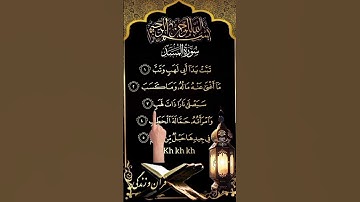 بسم الله الرحمن الرحيم
سورة المسد
تَبَّتْ يَدَا أَبِي لَهَبٍ وَتَبَّ ١
مَا أَغْنَىٰ عَنْهُ مَالُهُ وَمَا كَسَبَ ٢
سَيَصْلَىٰ نَارًا ذَاتَ لَهَبٍ ٣
وَامْرَأَتُهُ حَمَّالَةَ الْحَطَبِ ٤
فِي جِيدِهَا حَبْلٌ مِّن
Kh kh kh
قرآن و زندگی